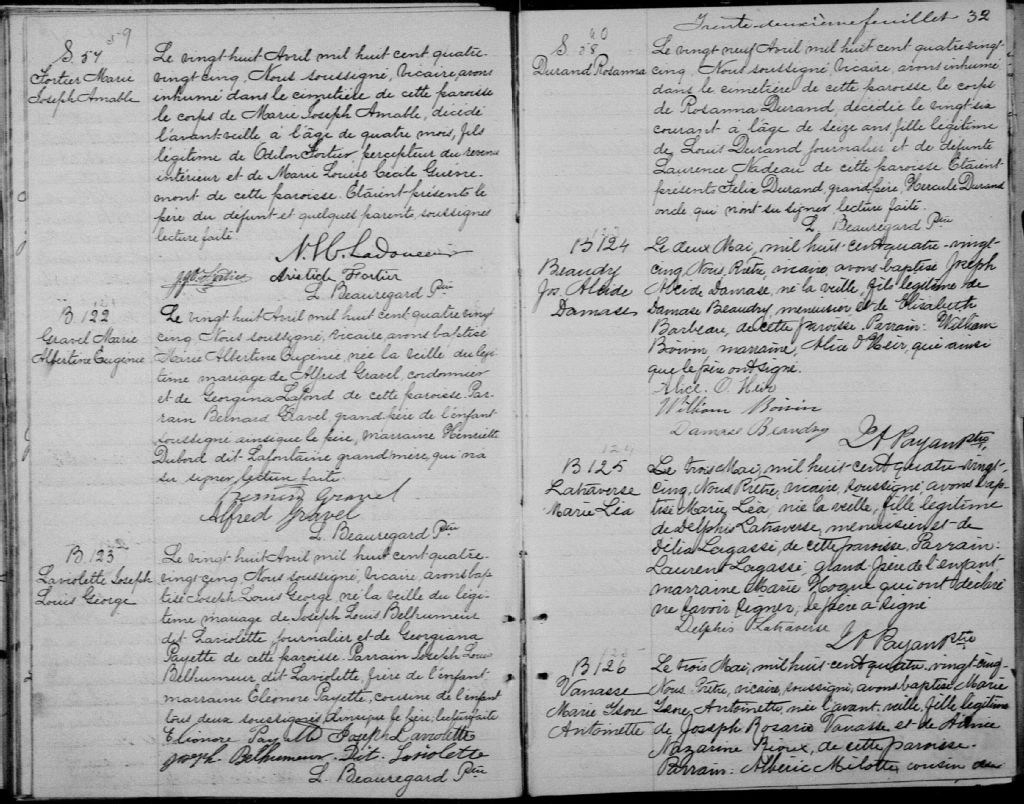 59
S. 57
Fortier Marie
Joseph Amable
Le vingt huit Avril mil huit cent quatre-
vingt cinq, Nous soussigné, Vicaire, avons
inhumé dans le cimetière de cette paroisse
le corps de Marie Joseph Amable, décédé
l'avant-veille à l'âge de quatre mois, fils
légitime de Odilon Fortier percepteur du revenu
intérieur et de Marie Louise Cécile Guevre-
mont de cette paroisse. Etaient présents le
père du défunt et quelques parents soussignés
lecture faite
Aristide Fortier
L. Beauregard Ptre
B. 122
Gravel Marie
Albertine Eugénie
Le vingt huit Avril mil huit cent quatre vingt
cinq, Nous soussigné, vicaire, avons baptisé
Marie Albertine Eugénie, née la veille du légi
time mariage de Alfred Gravel, cordonnier
et de Georgina Lafond de cette paroisse. Par-
rain Bernard Gravel grand père de l'enfant
soussigné ainsi que le père, marraine Henriette
Dubord dit Lafontaine grand'mère, qui n'a
su signer, lecture faite.
Gravel
Alfred Gravel
L. Beauregard Ptre
B. 123
Laviolette Joseph
Louis George
Le vingt huit Avril mil huit cent quatre-
vingt cinq, Nous soussigné, Vicaire, avons bap
tisé Joseph Louis George né la veille du légi-
time mariage de Joseph Louis Belhumeur
dit Laviolette journalier et de Georgiana
Payette de cette paroisse. Parrain Joseph Louis
Belhumeur dit Laviolette, frère de l'enfant
marraine Eléonore Payette, cousine de l'enfant
tous deux soussignés ainsi que le père, lecture faite
Eléonore Payette Joseph Laviolette
Joseph Belhumeur Dit Laviolette
L. Beauregard Ptre
Trente-deuxième feuillet 32
60
S. 58
Durand Rosanna
Le vingt neuf Avril mil huit cent quatre vingt-
cinq, Nous soussigné Vicaire, avons inhumé
dans le cimetière de cette paroisse le corps
de Rosanna Durand, décédée le vingt six
courant à l'âge de seize ans, fille légitime
de Louis Durand journalier et de défunte
Laurence Nadeau de cette paroisse. Etaient
présents Felix Durand, grand père, Hercule Durand
oncle qui n'ont su signer lecture faite.
L. Beauregard Ptre
B 124
Beaudry
Jos. Alcide
Damase
Le deux Mai, mil huit-cent quatre-vingt-
cinq Nous, Prêtre, vicaire, avons baptisé Joseph
Alcide Damase, né la veille, fils légitime de
Damase Beaudry, menuisier et de Elisabeth
Barbeau, de cette paroisse. Parrain: William
Boivin marraine, Alice O'Heir, qui ainsi
que le père ont signé.
Alice. O. Heir
William Boivin
Damase Beaudry
Payan ptre
124
B 125
Latraverse
Marie Léa
Le trois Mai, mil huit cent quatre-vingt-
cinq, Nous Prêtre, vicaire, soussigné, avons bap-
tisé Marie Léa, née la veille, fille légitime
de Delphis Latraverse, menuisier et de
Délia Lagassé, de cette paroisse. Parrain:
Laurent Lagassé grand père de l'enfant,
marraine Marie Hogue qui ont déclaré
ne savoir signer, le père a signé
Delphis Latraverse
Payan Ptre
B 126
Vanasse
Marie Isore
Antoinette
Le trois Mai, mil huit cent quatre-vingt-cinq
Nous, Prêtre, vicaire, soussigné, avons baptisé Marie
Isore, Antoinette, née l'avant-veille, fille légitime
de Joseph Rosario Vanasse et de
Nazarine Rioux, de cette paroisse.
Parrain: Albéric Milotte cousin